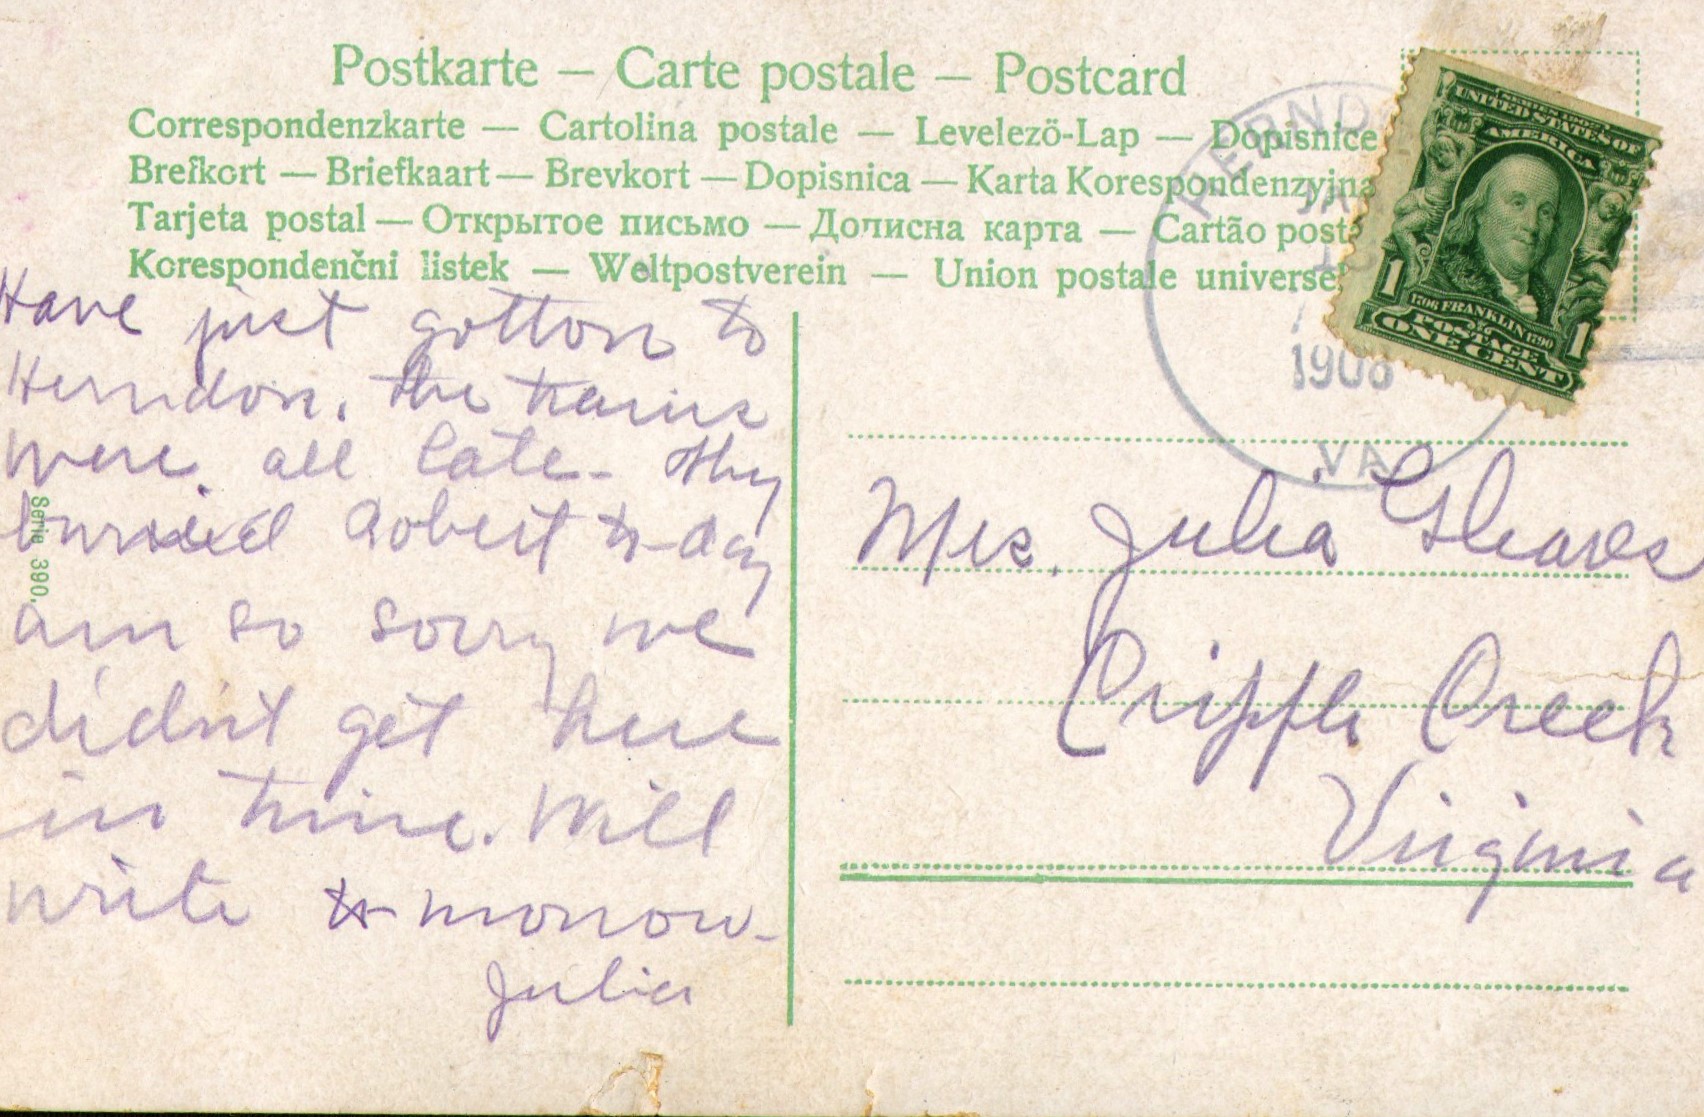 Postkarte — Carte postale — Postcard
Correspondenzkarte — Cartolina postale — Levelező-Lap — Dopisnice
Brefkort — Briefkaart — Brevkort — Dopisnica — Karta Korespondenzyjna
Tarjeta postal — Открытое письмо — Дописна карта — Cartão posta
Korespondenčni listek — Weltpostverein — Union postale universel
HERND
JAN
1908
VA
SERIES 1902
UNITED STATES OF
AMERICA
1706 FRANKLIN 1790
POSTAGE
1 ONE CENT 1
Have just gotton to
Herndon. The trains
were all late - they
burried Robert to-day
am so sorry we
didn't get here
in time. Will
write to-morrow-
Julia
Serie 390.
Mrs. Julia Gleaves
Cripple Creek
Virginia